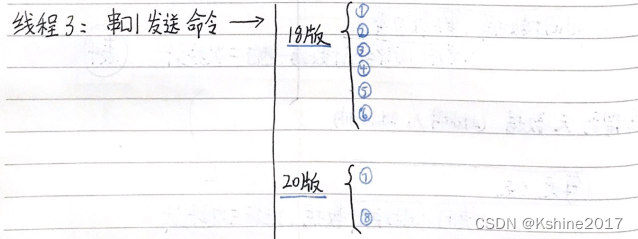 线程3：串口1发送命令 →
18版 { ①
②
③
④
⑤
⑥
20版 { ⑦
⑧
CSDN @Kshine2017